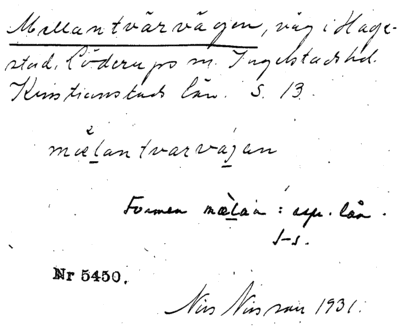 Mellantvärvägen, väg i Hage-
stad, Löderups sn. Ingelstads hd.
Kristianstads län. S. 13.
mælantvarvägan
Formen mælan : esp. lån.
S-s.
Nr 5450.
Nils Nilsson 1931.